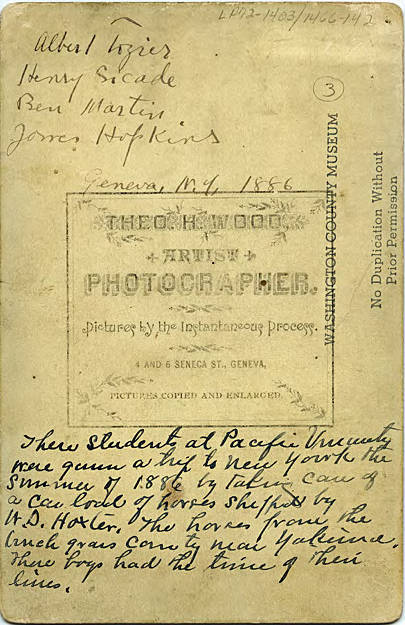 LPP2-1403/1466-142
Albert Lozier
Henry Sicade
Ben Martin
James Hopkins
3
Geneva, N.Y., 1886
THEO. H. WOOD,
ARTIST
PHOTOGRAPHER.
Pictures by the Instantaneous Process.
4 AND 6 SENECA ST., GENEVA,
PICTURES COPIED AND ENLARGED
WASHINGTON COUNTY MUSEUM
No Duplication Without
Prior Permission
These students at Pacific University
were given a trip to New York the
summer of 1886 by taking care of
a car load of horses shipped by
W.D. Hoxter. The horses from the
bunch grass county near Yakima.
These boys had the time of their
lives.